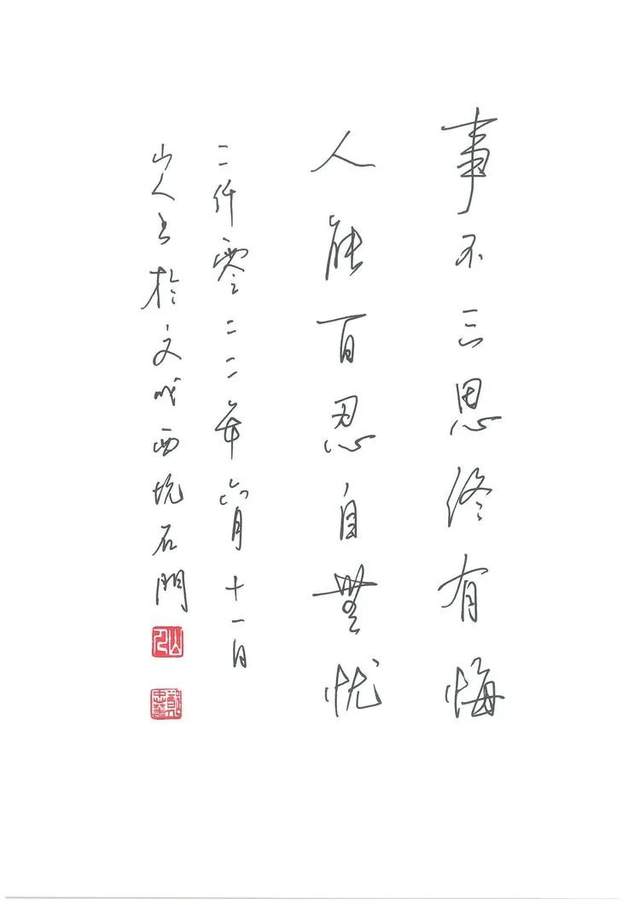 事不三思终有悔
人能百忍自無忧
二仟零二二年六月十一日
山人书於文成西坑石門
山人